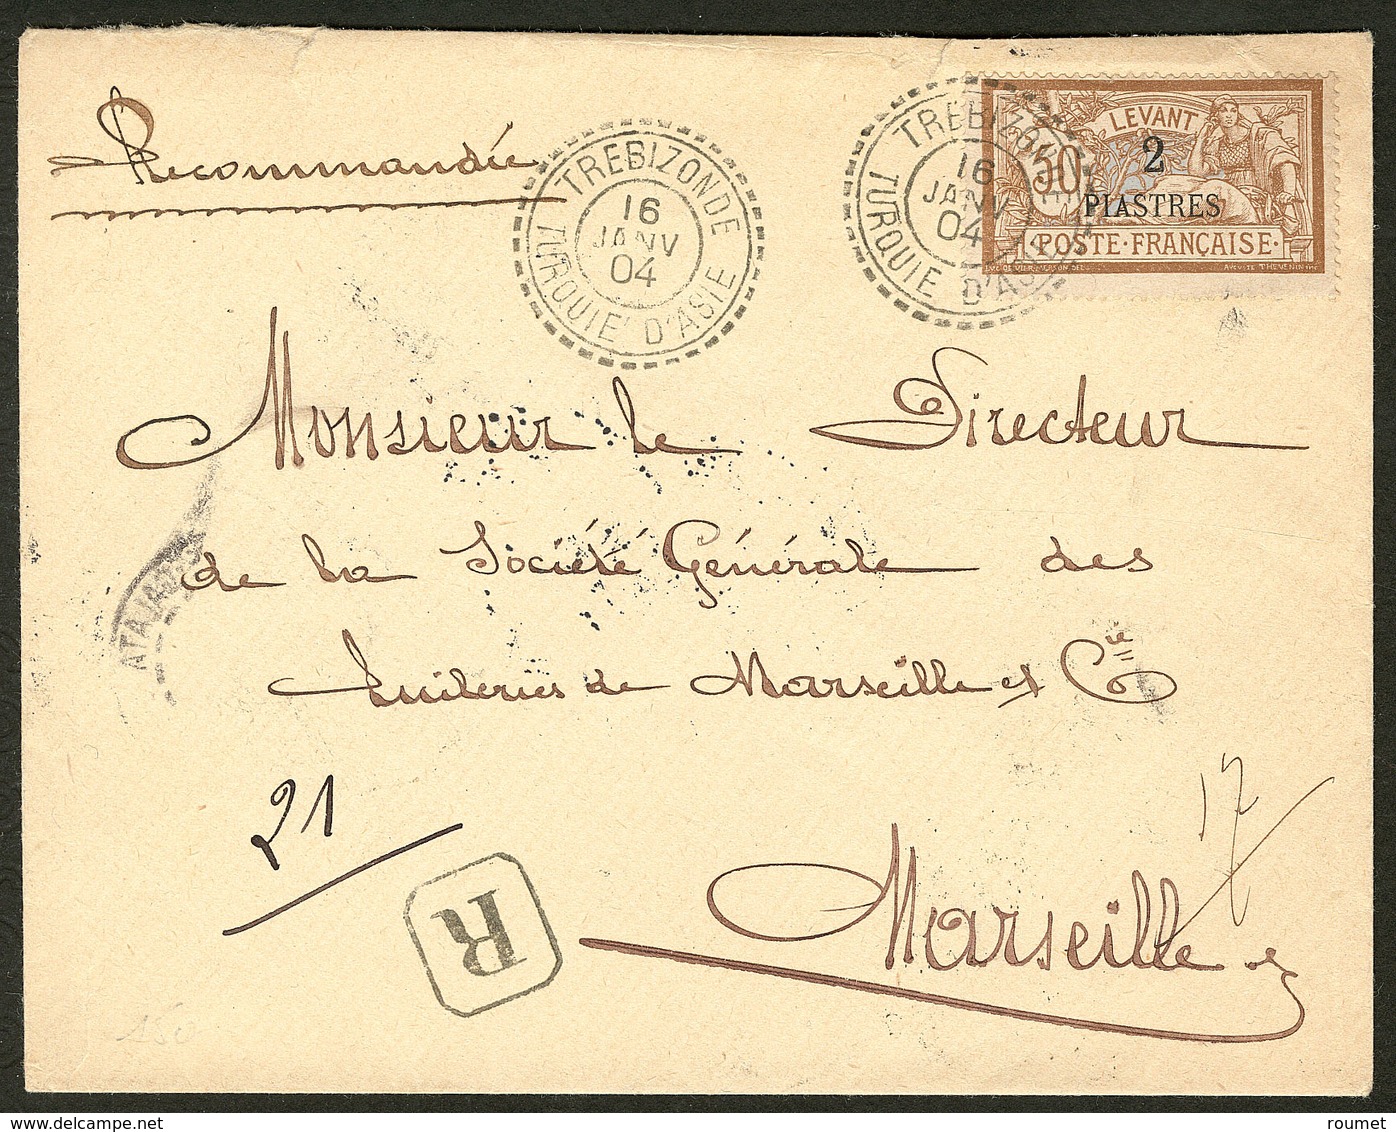 Recommandée
TREBIZONDE
16
JANV
04
TURQUIE D'ASIE
TREBIZONDE
16
JANV
04
TURQUIE D'ASIE
LEVANT
50
2
PIASTRES
POSTE·FRANÇAISE·
Monsieur le Directeur
de la Société Générale des
Huileries de Marseille et Cie
21
R
17
Marseille
150
roumet